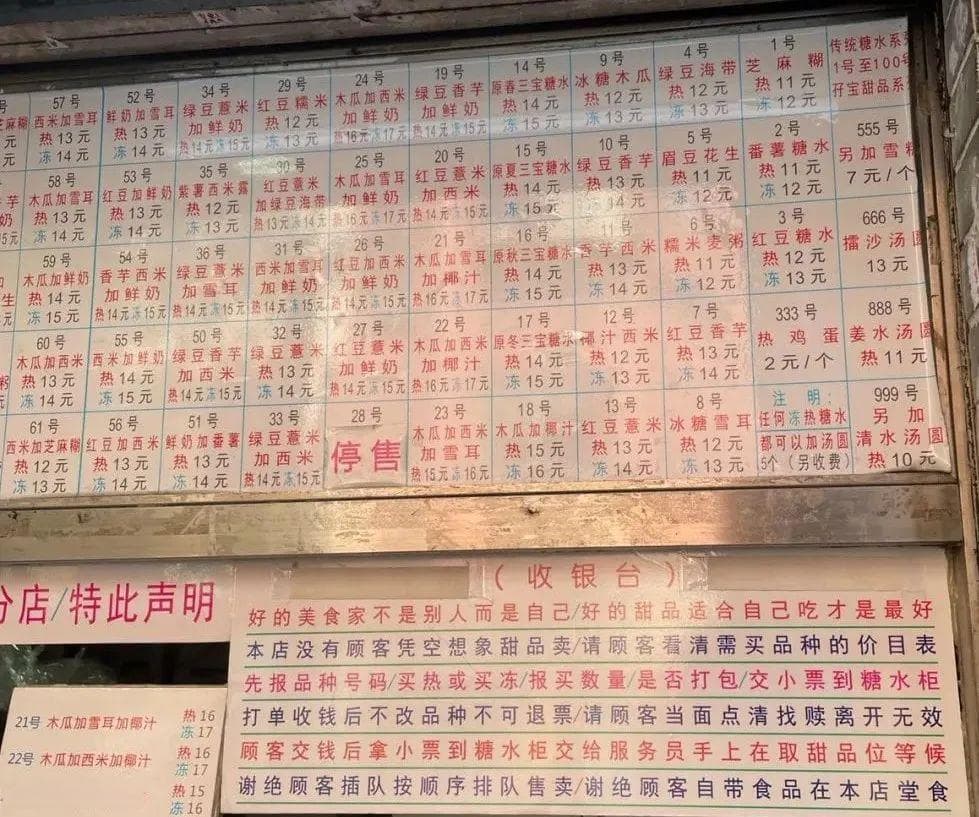 传统糖水系
1号至100号
孖宝甜品系
555 号
另加雪
7 元/个
666 号
擂沙汤圆
13 元
888 号
姜水汤圆
热 11 元
999 号
另加
清水汤圆
热 10 元
1 号
芝麻糊
热 11 元
冻 12 元
2 号
番薯糖水
热 11 元
冻 12 元
3 号
红豆糖水
热 12 元
冻 13 元
333 号
热鸡蛋
2 元/个
注明：
任何冻热糖水
都可以加汤圆
5个（另收费）
4 号
绿豆海带
热 12 元
冻 13 元
5 号
眉豆花生
热 11 元
冻 12 元
6 号
糯米麦粥
热 11 元
冻 12 元
7 号
红豆香芋
热 13 元
冻 14 元
8 号
冰糖雪耳
热 12 元
冻 13 元
9 号
冰糖木瓜
热 12 元
冻 13 元
10 号
绿豆香芋
热 13 元
冻 14 元
11 号
香芋西米
热 13 元
冻 14 元
12 号
椰汁西米
热 12 元
冻 13 元
13 号
红豆薏米
热 13 元
冻 14 元
14 号
原春三宝糖水
热 14 元
冻 15 元
15 号
原夏三宝糖水
热 14 元
冻 15 元
16 号
原秋三宝糖水
热 14 元
冻 15 元
17 号
原冬三宝糖水
热 14 元
冻 15 元
18 号
木瓜加椰汁
热 15 元
冻 16 元
19 号
绿豆香芋
加鲜奶
热14元冻15元
20 号
红豆薏米
加西米
热14元冻15元
21 号
木瓜加雪耳
加椰汁
热16元冻17元
22 号
木瓜加西米
加椰汁
热16元冻17元
23 号
木瓜加西米
加雪耳
热15元冻16元
24 号
木瓜加西米
加鲜奶
热16元冻17元
25 号
木瓜加雪耳
加鲜奶
热16元冻17元
26 号
红豆加西米
加鲜奶
热14元冻15元
27 号
红豆薏米
加鲜奶
热14元冻15元
28 号
停售
29 号
红豆糯米
热 12 元
冻 13 元
30 号
红豆薏米
加绿豆海带
热13元冻14元
31 号
西米加雪耳
加鲜奶
热14元冻15元
32 号
绿豆薏米
热 13 元
冻 14 元
33 号
绿豆薏米
加西米
热14元冻15元
34 号
绿豆薏米
加鲜奶
热14元冻15元
35 号
紫薯西米露
热 12 元
冻 13 元
36 号
绿豆薏米
加雪耳
热14元冻15元
50 号
绿豆香芋
加西米
热14元冻15元
51 号
鲜奶加番薯
热 13 元
冻 14 元
52 号
鲜奶加雪耳
热 13 元
冻 14 元
53 号
红豆加鲜奶
热 13 元
冻 14 元
54 号
香芋西米
加鲜奶
热14元冻15元
55 号
西米加鲜奶
热 14 元
冻 15 元
56 号
红豆加西米
热 13 元
冻 14 元
57 号
西米加雪耳
热 13 元
冻 14 元
58 号
木瓜加雪耳
热 13 元
冻 14 元
59 号
木瓜加鲜奶
热 14 元
冻 15 元
60 号
木瓜加西米
热 13 元
冻 14 元
61 号
西米加芝麻糊
热 12 元
冻 13 元
分店/特此声明
21号 木瓜加雪耳加椰汁 热16
冻17
22号 木瓜加西米加椰汁 热16
冻17
热15
冻16
（收银台）
好的美食家不是别人而是自己/好的甜品适合自己吃才是最好
本店没有顾客凭空想象甜品卖/请顾客看清需买品种的价目表
先报品种号码/买热或买冻/报买数量/是否打包/交小票到糖水柜
打单收钱后不改品种不可退票/请顾客当面点清找赎离开无效
顾客交钱后拿小票到糖水柜交给服务员手上在取甜品位等候
谢绝顾客插队按顺序排队售卖/谢绝顾客自带食品在本店堂食